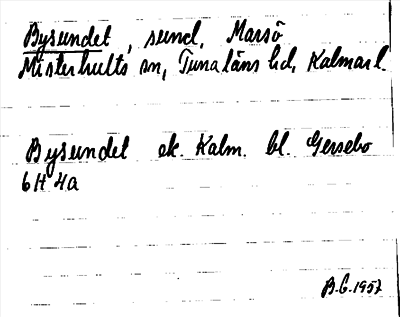 Bysundet, sund, Marsö
Misterhults sn, Tunaläns hd, Kalmar l.
Bysundet ek. Kalm. bl. Gersebo
6H 4a
B.G. 1957